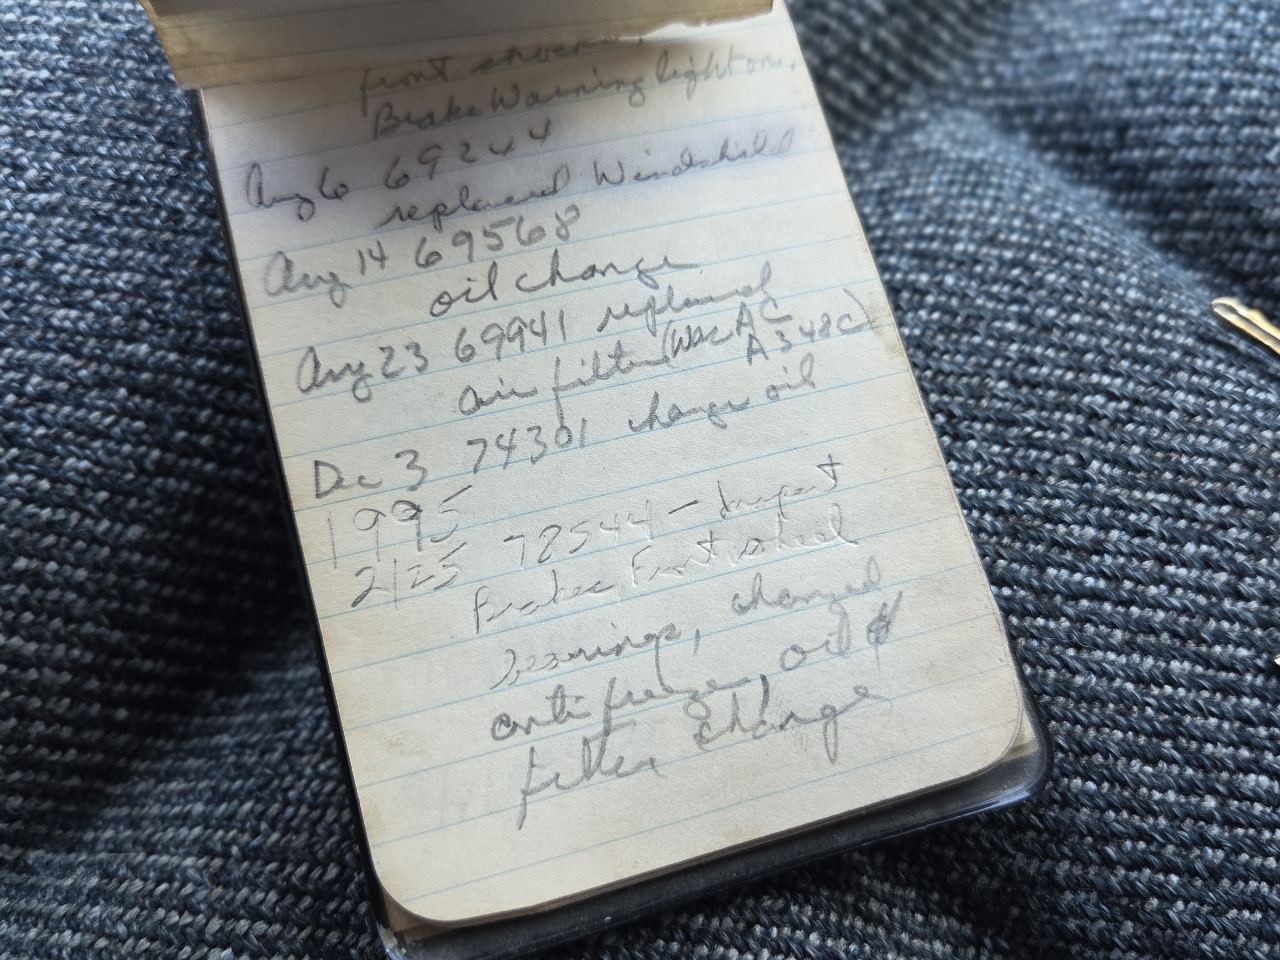 front
Brake Warning light on.
Aug 6 69244
replaced Windshield
Aug 14 69568
oil change
Aug 23 69941 replaced
air filter (Was AC
A348C)
Dec 3 74301 change oil
1995
2/25 78544 - Inspect
Brakes, Front wheel
bearings, changed
antifreeze, oil &
filter change